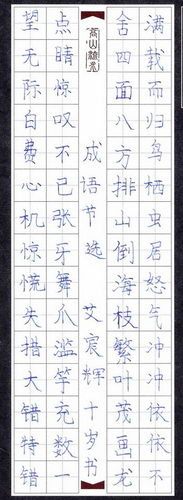 满载而归鸟栖虫居怒气冲冲依依不
舍四面八方排山倒海枝繁叶茂画龙
成语节选 艾宸辉 十岁书
点睛惊叹不已张牙舞爪滥竽充数一
望无际白费心机惊慌失措大错特错